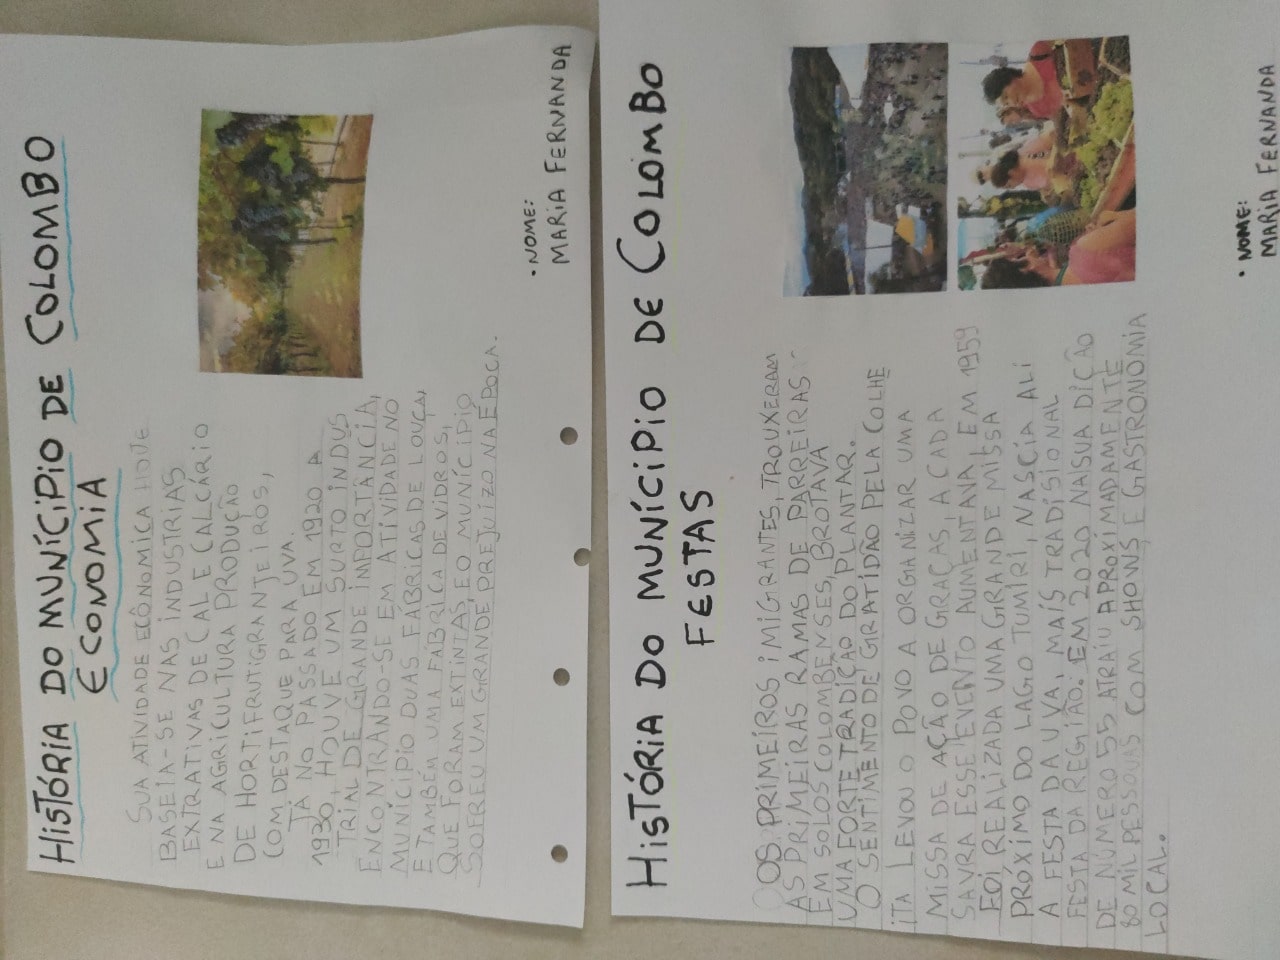 HISTÓRIA DO MUNÍCIPIO DE COLOMBO
ECONOMIA
SUA ATIVIDADE ECÔNOMICA HOJE
BASEIA-SE NAS INDUSTRIAS
EXTRATIVAS DE CAL E CALCÁRIO
E NA AGRICULTURA PRODUÇÃO
DE HORTIFRUTIGRANJEIROS,
COM DESTAQUE PARA UVA.
JÁ NO PASSADO EM 1920 A
1930, HOUVE UM SURTO INDUS
TRIAL DE GRANDE IMPORTÂNCIA,
ENCONTRANDO-SE EM ATIVIDADE NO
MUNICÍPIO DUAS FÁBRICAS DE LOUÇA,
E TAMBÉM UMA FÁBRICA DE VIDROS,
QUE FORAM EXTINTAS, E O MUNÍCIPIO
SOFREU UM GRANDE PREJUIZO NA ÉPOCA.
• NOME:
MARIA FERNANDA
HISTÓRIA DO MUNÍCIPIO DE COLOMBO
FESTAS
OS PRIMEIROS IMIGRANTES, TROUXERAM
AS PRIMEIRAS RAMAS DE PARREIRAS.
EM SOLOS COLOMBENSES, BROTAVA
UMA FORTE TRADIÇÃO DO PLANTAR.
O SENTIMENTO DE GRATIDÃO PELA COLHE
ITA LEVOU O POVO A ORGIANIZAR UMA
MISSA DE AÇÃO DE GRAÇAS, A CADA
SAVRA ESSE EVENTO AUMENTAVA, EM 1959
FOI REALIZADA UMA GRANDE MISSA
PRÓXIMO DO LAGO TUMIRI, NASCIA ALI
A FESTA DA UVA, MAIS TRADISIONAL
FESTA DA REGIÃO. EM 2020 NA SUA DIÇÃO
DE NÚMERO 55 ATRAIU APROXIMADAMENTE
80 MIL PESSOAS COM SHOWS E GASTRONOMIA
LOCAL.
• NOME:
MARIA FERNANDA